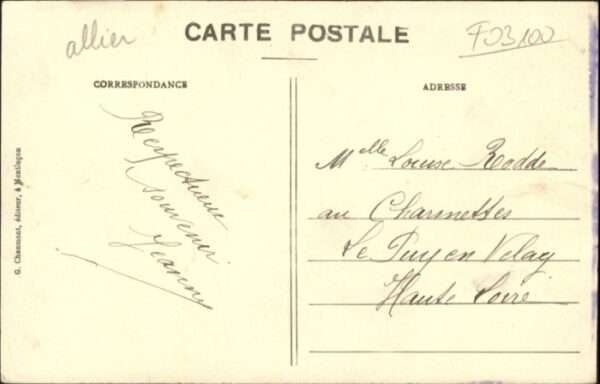 allier
CARTE POSTALE
F03100
CORRESPONDANCE
ADRESSE
Respectueux
souvenir
Jeanny
Melle Louise Rodde
au Charmettes
Le Puy en Velay
Haute Loire
G. Chaumont, éditeur, à Montluçon